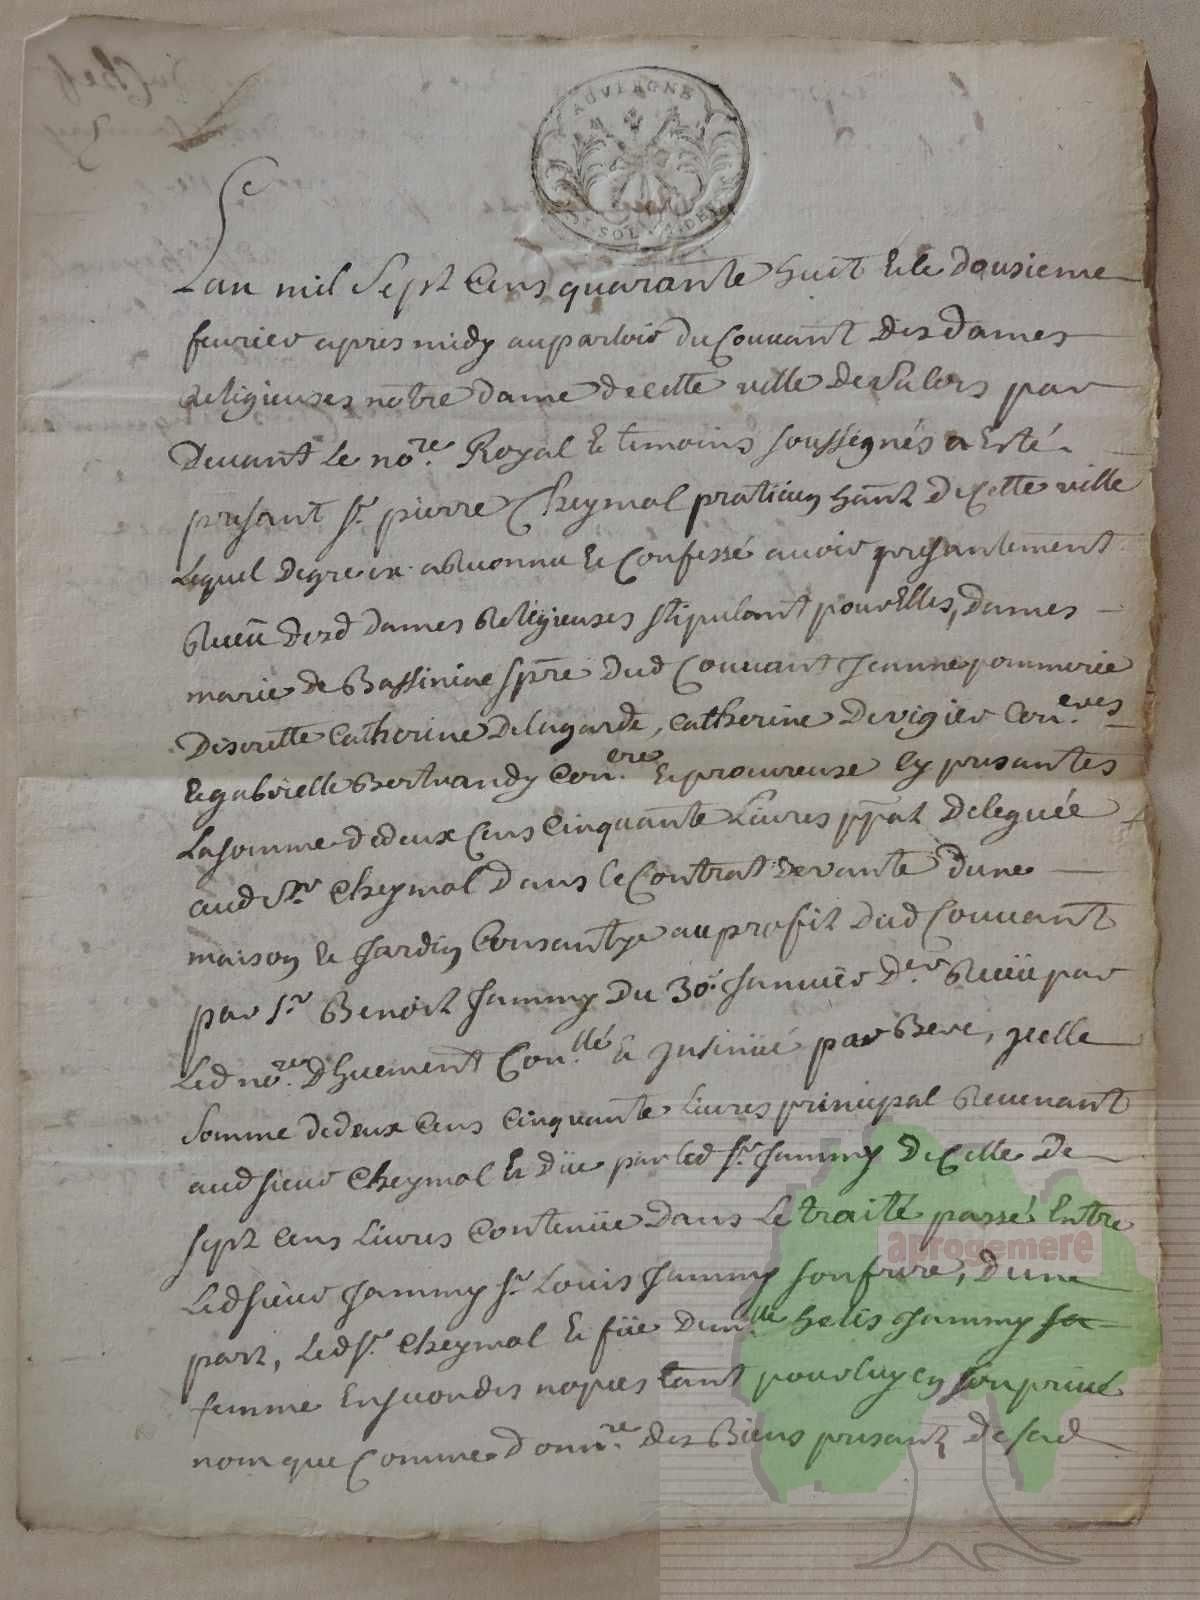 AUVERGNE
SOL
Lan mil Sept Cens quarante huit & le dousieme
fevrier apres midy au parloir du Couvant des dames
Religieuses notre dame de cette ville de Salers par
Devant le no.re Royal & temoins soussegnés a esté
presant Sr. pierre Cheymol praticien hant. de cette ville
Lequel de gre a Reconnu & Confessé avoir presantement
Receu desd dames Religieuses stipulant pour elles, dames
marie de Bassiniac spre dud Couvant Jeanne pommerie
Discrette Catherine Delagarde, Catherine Devigier Con.eres
& gabrielle Bertrandy Con.ere & procureuse Cy presantes
La somme de deux Cens Cinquante Livres ppal deleguée
aud Sr. Cheymol dans le Contrat de vante dune
maison & Jardin Consantye au profit dud Couvant
par Sr. Benoit Jammy du 30e. Janvier der. Receu par
Led no.re dhuement Con.llé & Insinüé par Bere, Icelle
Somme de deux Cens Cinquante Livres principal Revenant
aud sieur Cheymol & düe par led Sr. Jammy de Celle de
sept Cens Livres Contenüe dans le traité passé Entre
Led sieur Jammy Sr. Louis Jammy son frere, dune
part, Led Sr. Cheymol & füe dem.lle helis Jammy sa
femme En secondes nopces tant pour luy en son privé
nom que Comme donn.re des Biens presant de sad
aprogemere